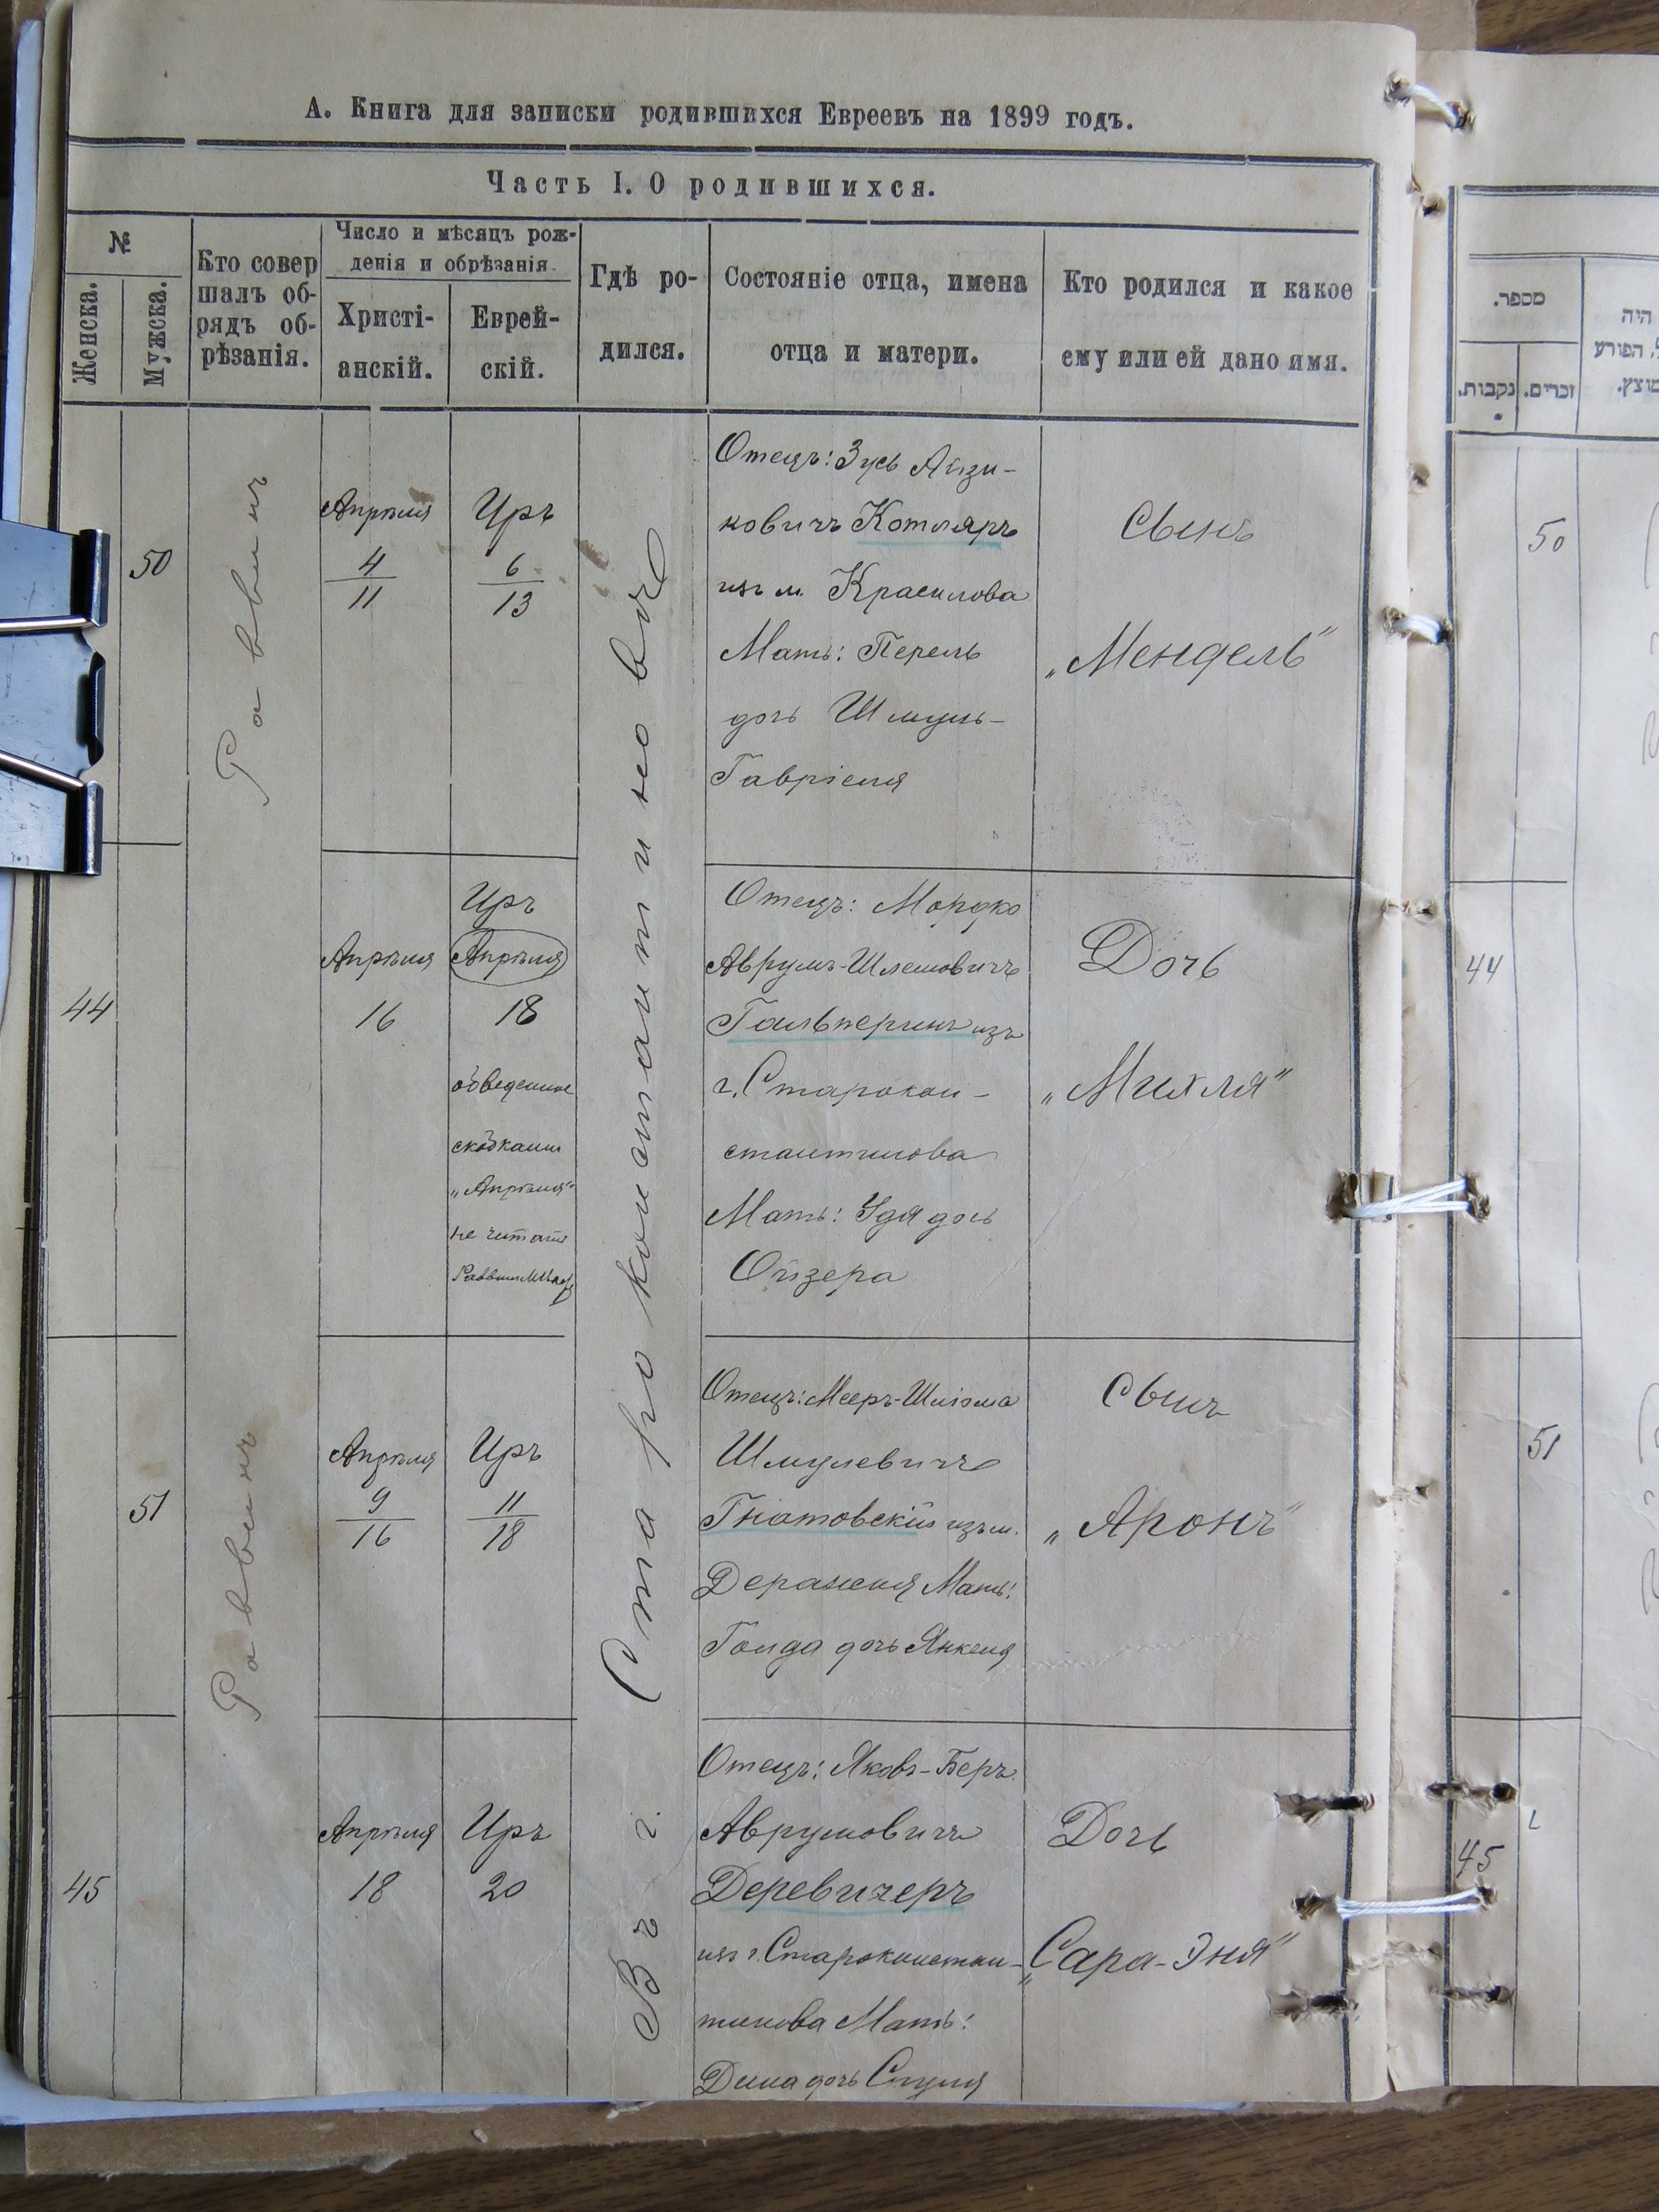 А. Книга для записки родившихся Евреевъ на 1899 годъ.
Часть I. О родившихся.
№
Женска.
Мужска.
Кто совер
шалъ об-
рядъ об-
рѣзанія.
Число и мѣсяцъ рож-
денія и обрѣзанія.
Христі-
анскій.
Еврей-
скій.
Гдѣ ро-
дился.
Состояніе отца, имена
отца и матери.
Кто родился и какое
ему или ей дано имя.
Въ г. Староконстантиновѣ
50
Раввинъ
Апрѣля
4
11
Иръ
6
13
Отецъ: Зусь Айзи-
ковичъ Котляръ
изъ м. Красилова
Мать: Перель
дочь Шмуль-
Гавріеля
Сынъ
„Мендель“
44
Апрѣля
16
Иръ
Апрѣля
18
обведенное
скобками
„Апрѣля“
не читать
Раввинъ
Отецъ: Мордко
Аврумъ-Шлемовичъ
Гальперинъ изъ
г. Старокон-
стантинова
Мать: Удя дочь
Ойзера
Дочь
„Михля“
51
Раввинъ
Апрѣля
9
16
Иръ
11
18
Отецъ: Мееръ-Шлёма
Шмулевичъ
Гнатовскій изъ м.
Деражня Мать:
Голда дочь Янкеля
Сынъ
„Аронъ“
45
Апрѣля
18
Иръ
20
Отецъ: Яковъ-Беръ
Аврумовичъ
Деревичеръ
изъ г. Староконстан-
тинова Мать:
Дина дочь Сруля
Дочь
„Сара-Эня“
מספר.
נקבות.
זכרים.
היה
הפורע
50
44
51
45